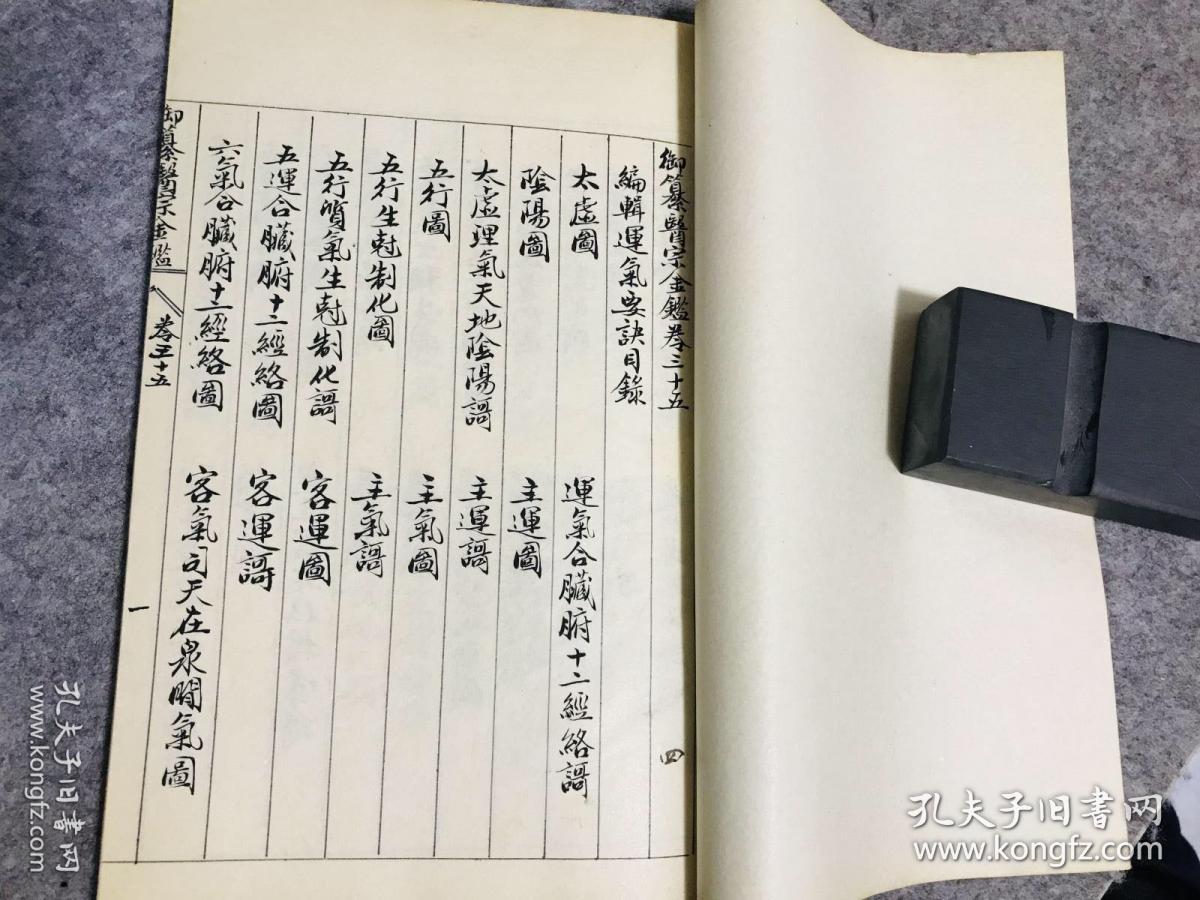 御纂醫宗金鑑卷三十五
四
編輯運氣要訣目錄
太虛圖
運氣合臟腑十二經絡謌
陰陽圖
主運圖
太虛理氣天地陰陽謌
主運謌
五行圖
主氣圖
五行生尅制化圖
主氣謌
五行質氣生尅制化謌
客運圖
五運合臟腑十二經絡圖
客運謌
六氣合臟腑十二經絡圖
客氣司天在泉間氣圖
御纂醫宗金鑑
卷三十五
一
孔夫子旧书网
kongfz.com
孔夫子旧书网
www.kongfz.com